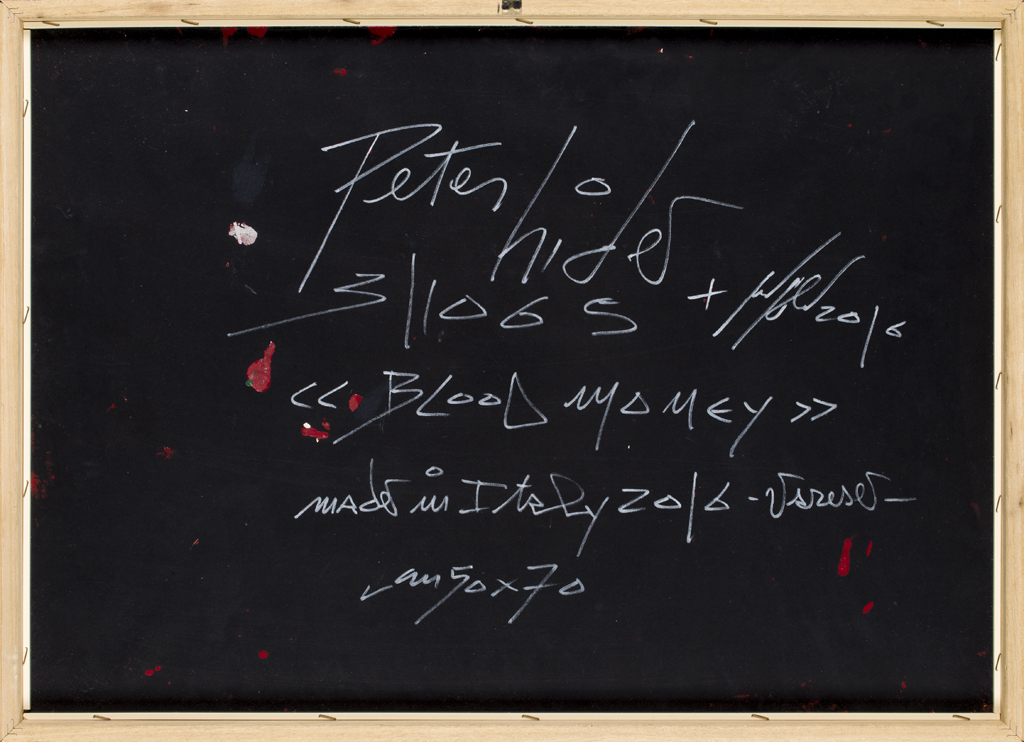 Peter
hide
311065 + 2016
<< BLOOD MONEY >>
made in Italy 2016 - Varese -
cm 50x70